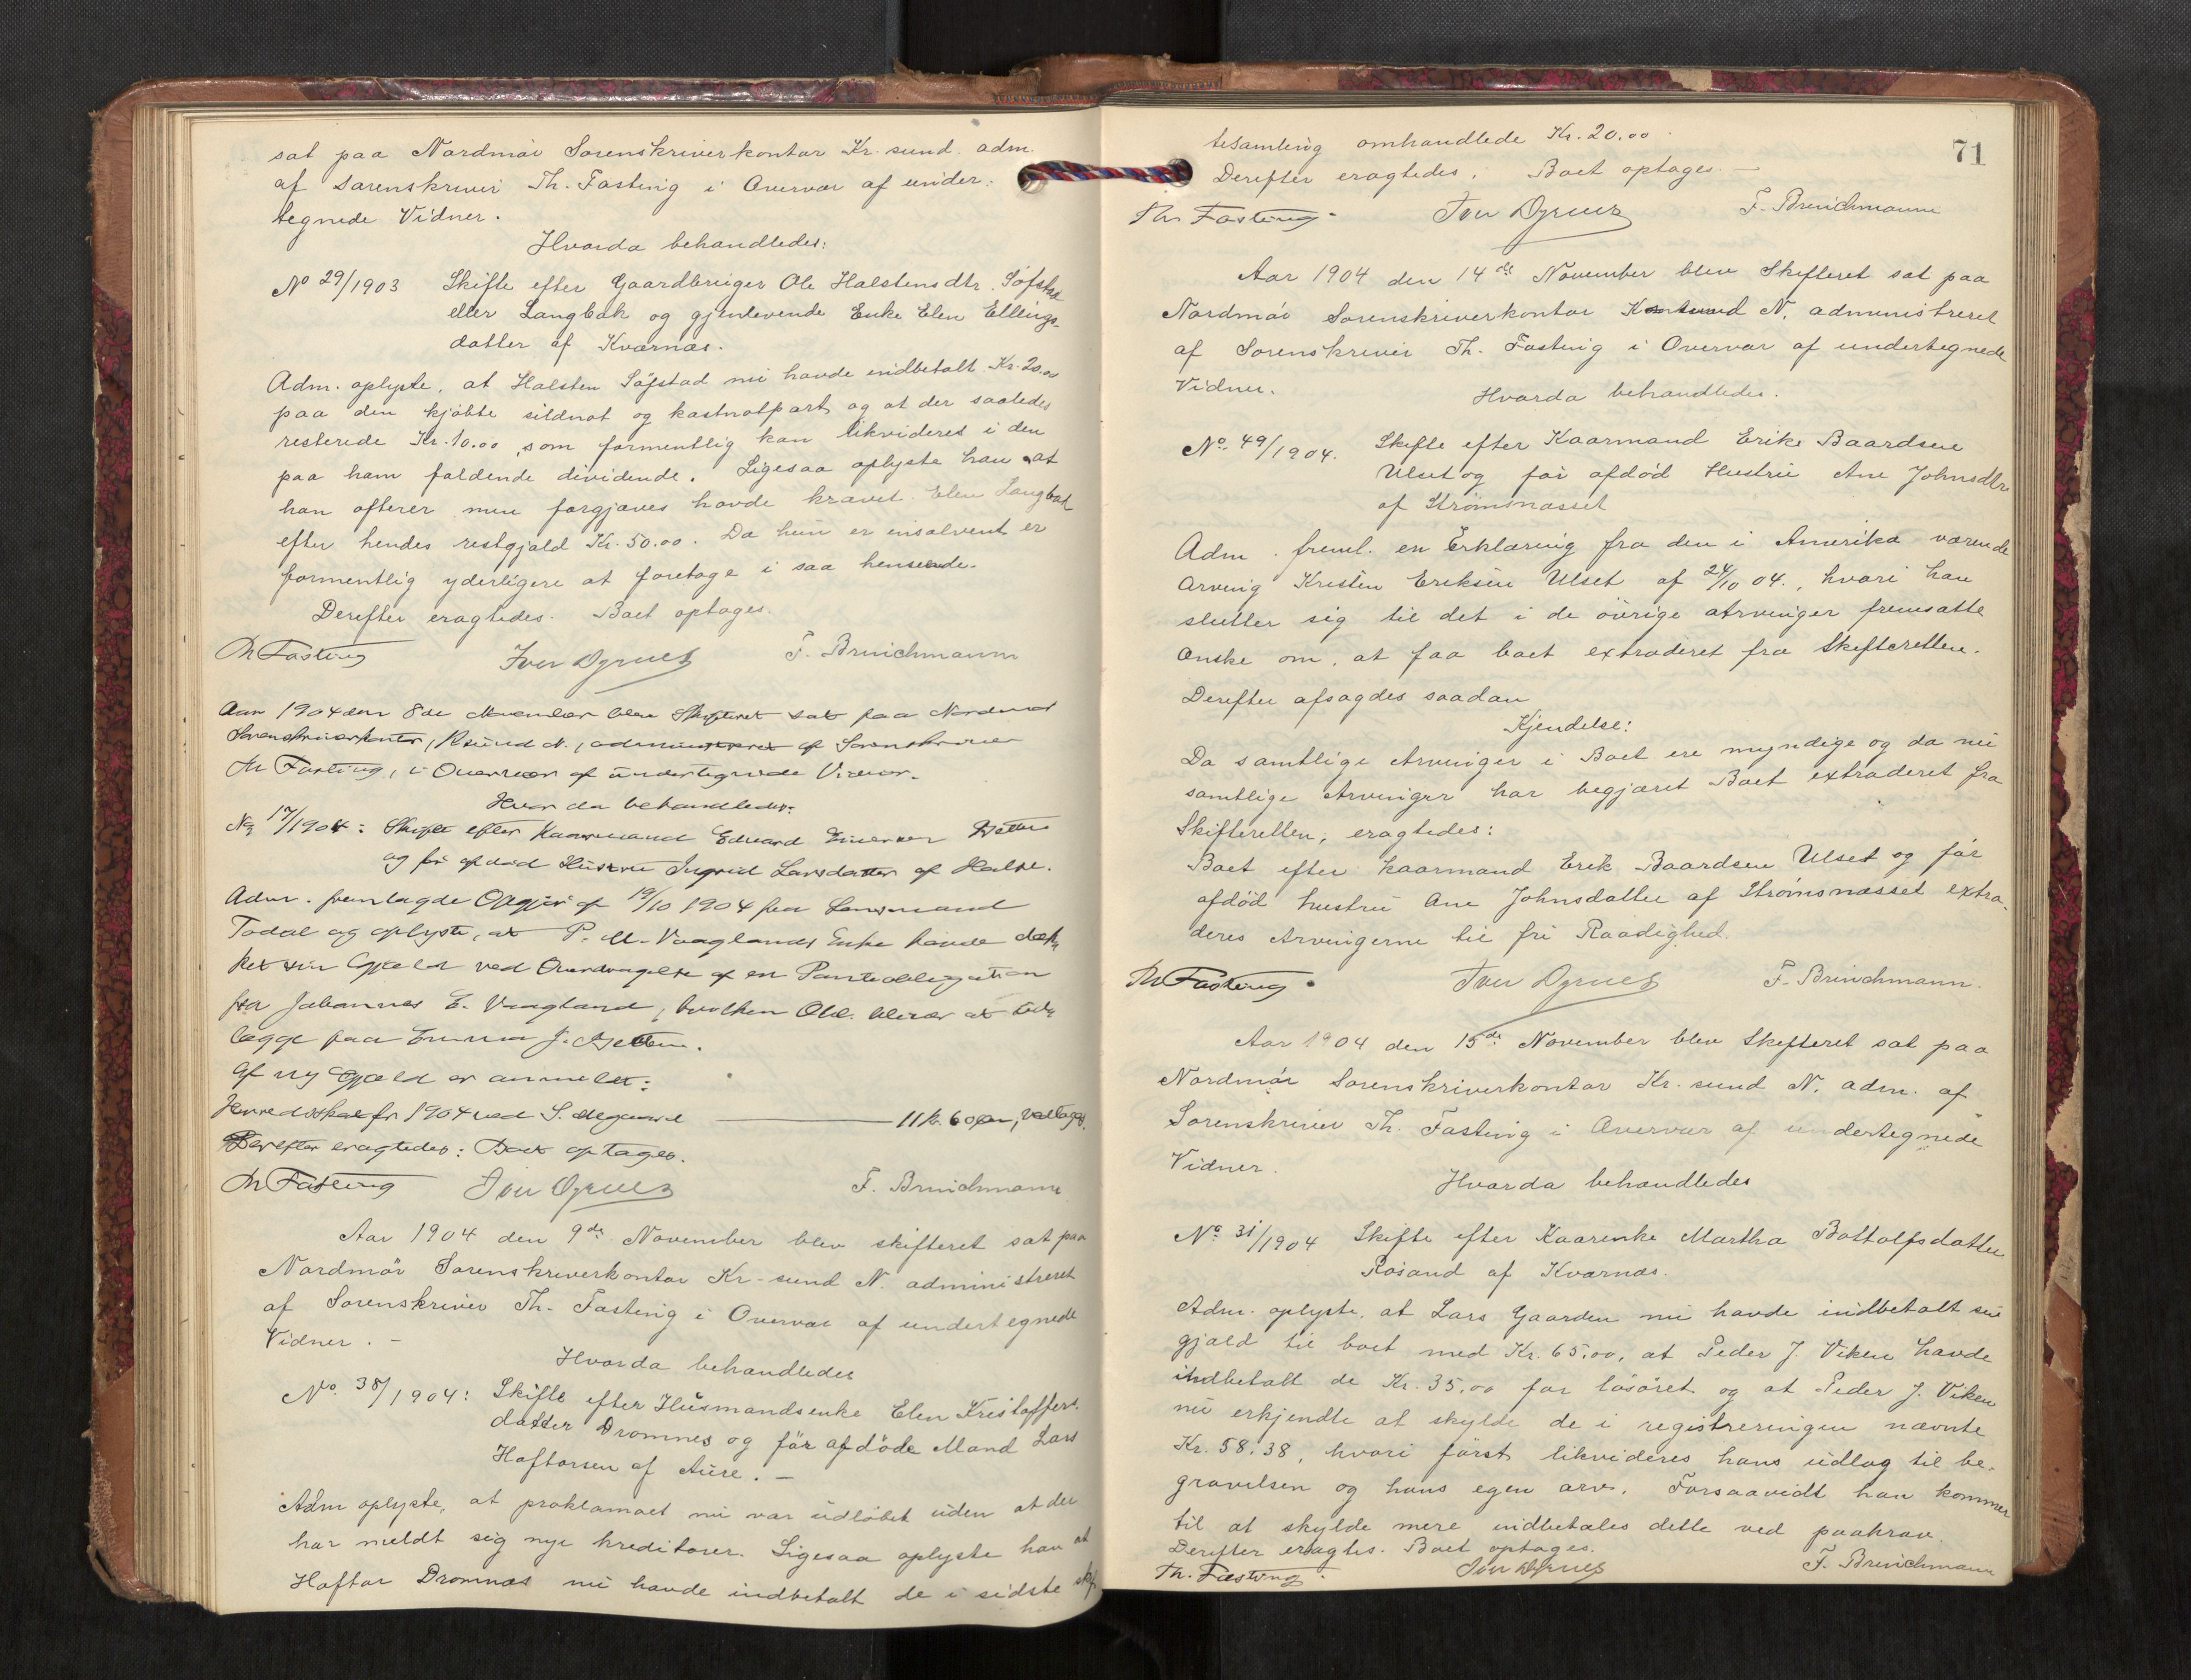 sat paa Nordmør Sorenskriverkontor Kr.sund. adm.
af Sorenskriver Th. Fasting i Overvær af under:
tegnede Vidner.
Hvorda behandledes:
No 29/1903 Skifte efter Gaardbruger Ole Halstensdtr. Söfstad
eller Langbak og gjenlevende Enke Elen Ellings-
datter af Kværnæs.
Adm. oplyste, at Halsten Söfstad nu havde indbetalt Kr. 20.00
paa den kjöbte sildnot og kastnotpart og at der saaledes
resterede Kr. 10.00, som formentlig kan likvideres i den
paa ham faldende dividende. Ligesaa oplyste han at
han ofterer men forgjæves havde krævet Elen Langbak
efter hendes restgjæld Kr. 50.00. Da hun er insolvent er
formentlig yderligere at foretage i saa henseende.
Derefter eragtedes. Boet optages.
Th Fasting Iver Dyrnes F. Brinichmann
Aar 1904 den 8de November blev Skifteret sat paa Nordmør
Sorenskriverkontor, Ksund N., administreret af Sorenskriver
Th Fasting, i Overvær af undertegnede Vidner.
Hvor da behandledes:
No 17/1904: Skifte efter Kaarmand Edvard Einersen
og før afdød Hustru Ingrid Larsdatter af Halse.
Adm. fremlagde Opgjör af 19/10 1904 fra Lensmand
Todal og oplyste, at P. M. Vaaglands Enke havde dæk-
ket sin Gjæld ved Overdragelse af en Panteobligation
fra Johannes E. Vaagland, hvilken Obl. bliver at ud-
lægge paa J.
Af ny Gjæld er anmeldt:
Herredsskat for 1904 ved S. Ødegaard 11 kr. 60 øre, vedtages.
Derefter eragtedes: Boet optages.
Th Fasting Iver Dyrnes F. Brinichmann
Aar 1904 den 9de November blev skifteret sat paa
Nordmör Sorenskriverkontor Kr-sund N. administreret
af Sorenskriver Th. Fasting i Overvær af undertegnede
Vidner. -
Hvorda behandledes
No. 38/1904: Skifte efter Husmandsenke Elen Kristoffers-
datter Dromnes og för afdöde Mand Lars
Haftorsen af Aure. -
Adm oplyste, at proklamaet nu var udlöbet uden at der
har meldt sig nye kreditorer. Ligesaa oplyste han at
Haftor Dromnæs nu havde indbetalt de i sidste skif-
71
tesamling omhandlede Kr. 20.00.
Derefter eragtedes: Boet optages. -
Th. Fasting. Iver Dyrnes F. Brinichmann
Aar 1904 den 14de November blev Skifteret sat paa
Nordmör Sorenskriverkontor N. administreret
af Sorenskriver Th. Fasting i Overvær af undertegnede
Vidner.
Hvorda behandledes.
No. 49/1904. Skifte efter Kaarmand Erike Baardsen
Ulset og för afdöd Hustru Ane Johnsdtr
af Strömsnæsset
Adm. freml. en Erklæring fra den i Amerika værende
Arving Kristen Eriksen Ulset af 24/10 04., hvori han
slutter sig til det i de övrige Arvinger fremsatte
Önske om, at faa boet extraderet fra Skifteretten.
Derefter afsagdes saadan
Kjendelse:
Da samtlige Arvinger i Boet ere myndige og da nu
samtlige Arvinger har begjæret Boet extraderet fra
Skifteretten, eragtedes:
Boet efter Kaarmand Erik Baardsen Ulset og för
afdöd hustru Ane Johnsdatter af Strömsnæsset extra-
deres Arvingerne til fri Raadighed.
Th Fasting. Iver Dyrnes F. Brinichmann.
Aar 1904 den 15de November blev Skifteret sat paa
Nordmör Sorenskriverkontor Kr.sund N. adm. af
Sorenskriver Th. Fasting i Overvær af undertegnede
Vidner.
Hvorda behandledes
No. 31/1904 Skifte efter Kaarenke Martha Bottolfsdatter
Rosand af Kværnæs.
Adm. oplyste, at Lars Gaarden nu havde indbetalt sin
gjæld til boet med Kr. 65.00, at Peder J. Viken havde
indbetalt de Kr. 35.00 for lösöret og at Peder J. Viken
nu erkjendte at skylde de i registreringen nævnte
Kr. 58.38, hvori först likvideres hans udlæg til be-
gravelsen og hans egen arv. Forsaavidt han kommer
til at skylde mere indbetales dette ved paakrav.
Derefter eragtes. Boet optages.
Th. Fasting. Iver Dyrnes F. Brinichmann